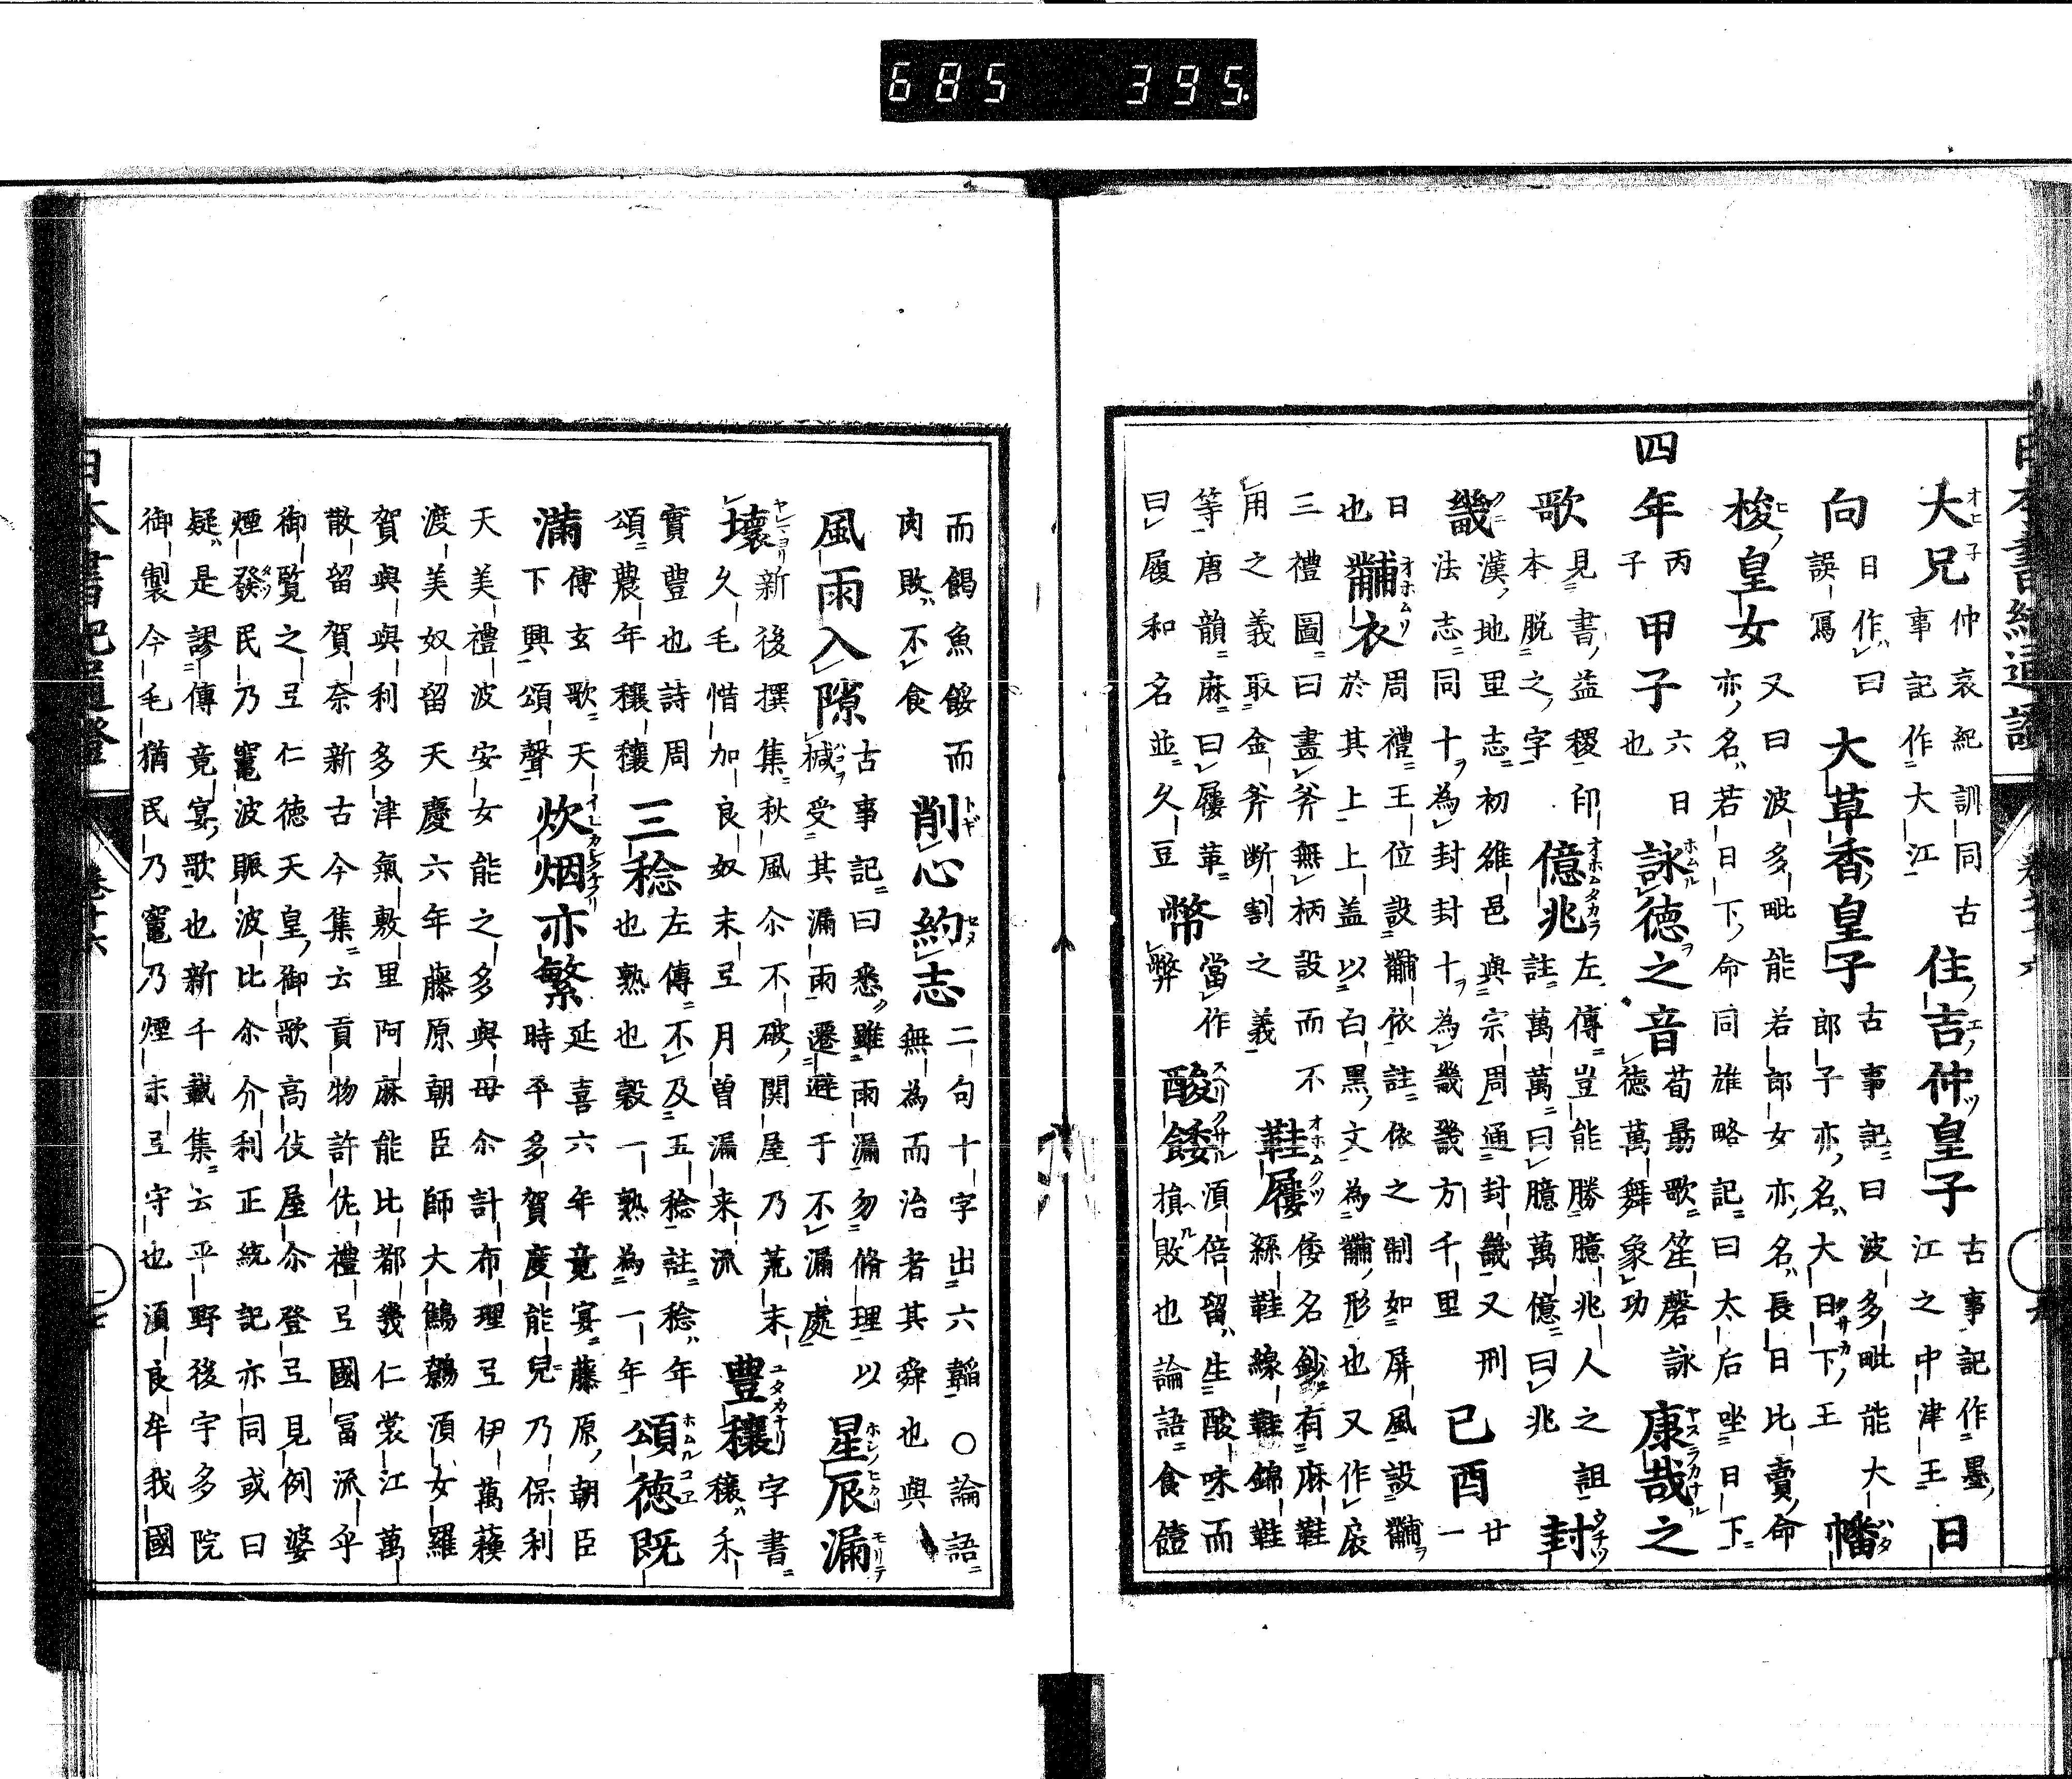 685 395.
大兄 仲哀紀訓同古事記作大江 住吉仲皇子 古事記作墨江之中津王 日
向 日作曰誤寫 大草香皇子 古事記曰波多毗能大郎子亦名大日下王 幡
梭皇女 又曰波多毗能若郎女亦名長日比賣命亦名若日下命同雄略記曰太后坐日下
四年 丙子 甲子 六日也 詠德之音 荀勗歌笙磬詠德萬舞象功 康哉之
歌 見書益稷印本脫之字 億兆 左傳豈能勝億兆人之詛註萬萬曰臆萬億曰兆 封
畿 漢地里志初雒邑與宗周通封畿又刑法志同十為封封十為畿畿方千里 己酉 廿一
日 黼衣 周禮王位設黼依註依之制如屏風設黼
也 於其上上蓋以白黑文為黼形也又作扆
三禮圖曰畫斧無柄設而不用之義取金斧斷割之義 鞋屨 倭名鈔有麻鞋絲鞋線鞋錦鞋
等唐韻麻曰屨革曰履和名並久豆 幣 當作弊 酸餧 須倍留生酸味而損敗也論語食饐
而餲魚餒而肉敗不食 削心約志 二句十字出六韜○論語無為而治者其舜也與
風雨入隙 古事記曰悉雖雨漏勿脩理以楲受其漏雨遷避于不漏處 星辰漏
壞 新後撰集秋風尒不破關屋乃荒末久毛惜加良奴末弖月曽漏来流 豊穰 字書穰禾
實豐也詩周頌農年穰穰 三稔 左傳不及五稔註稔年也熟也穀一熟為一年 頌德既
滿 傅玄歌天下興頌聲 炊烟亦繁 延喜六年竟宴藤原朝臣時平多賀度能兒乃保利
天美禮波安女能之多與母尒計布理弖伊萬蘓
渡美奴留天慶六年藤原朝臣師大鷦鷯須女羅
賀與與利多津氣敷里阿麻能比都幾仁裳江萬
散留賀奈新古今集云貢物許佐禮弖國冨流乎
御覧之弖仁德天皇御歌高伎屋尒登弖見例婆
煙發民乃竃波賑波比尒介利正統記亦同或曰
疑是謬傳竟宴歌也新千載集云平野後宇多院
御製今毛猶民乃竃乃煙末弖守也須良牟我國
日本書紀通證 卷十六